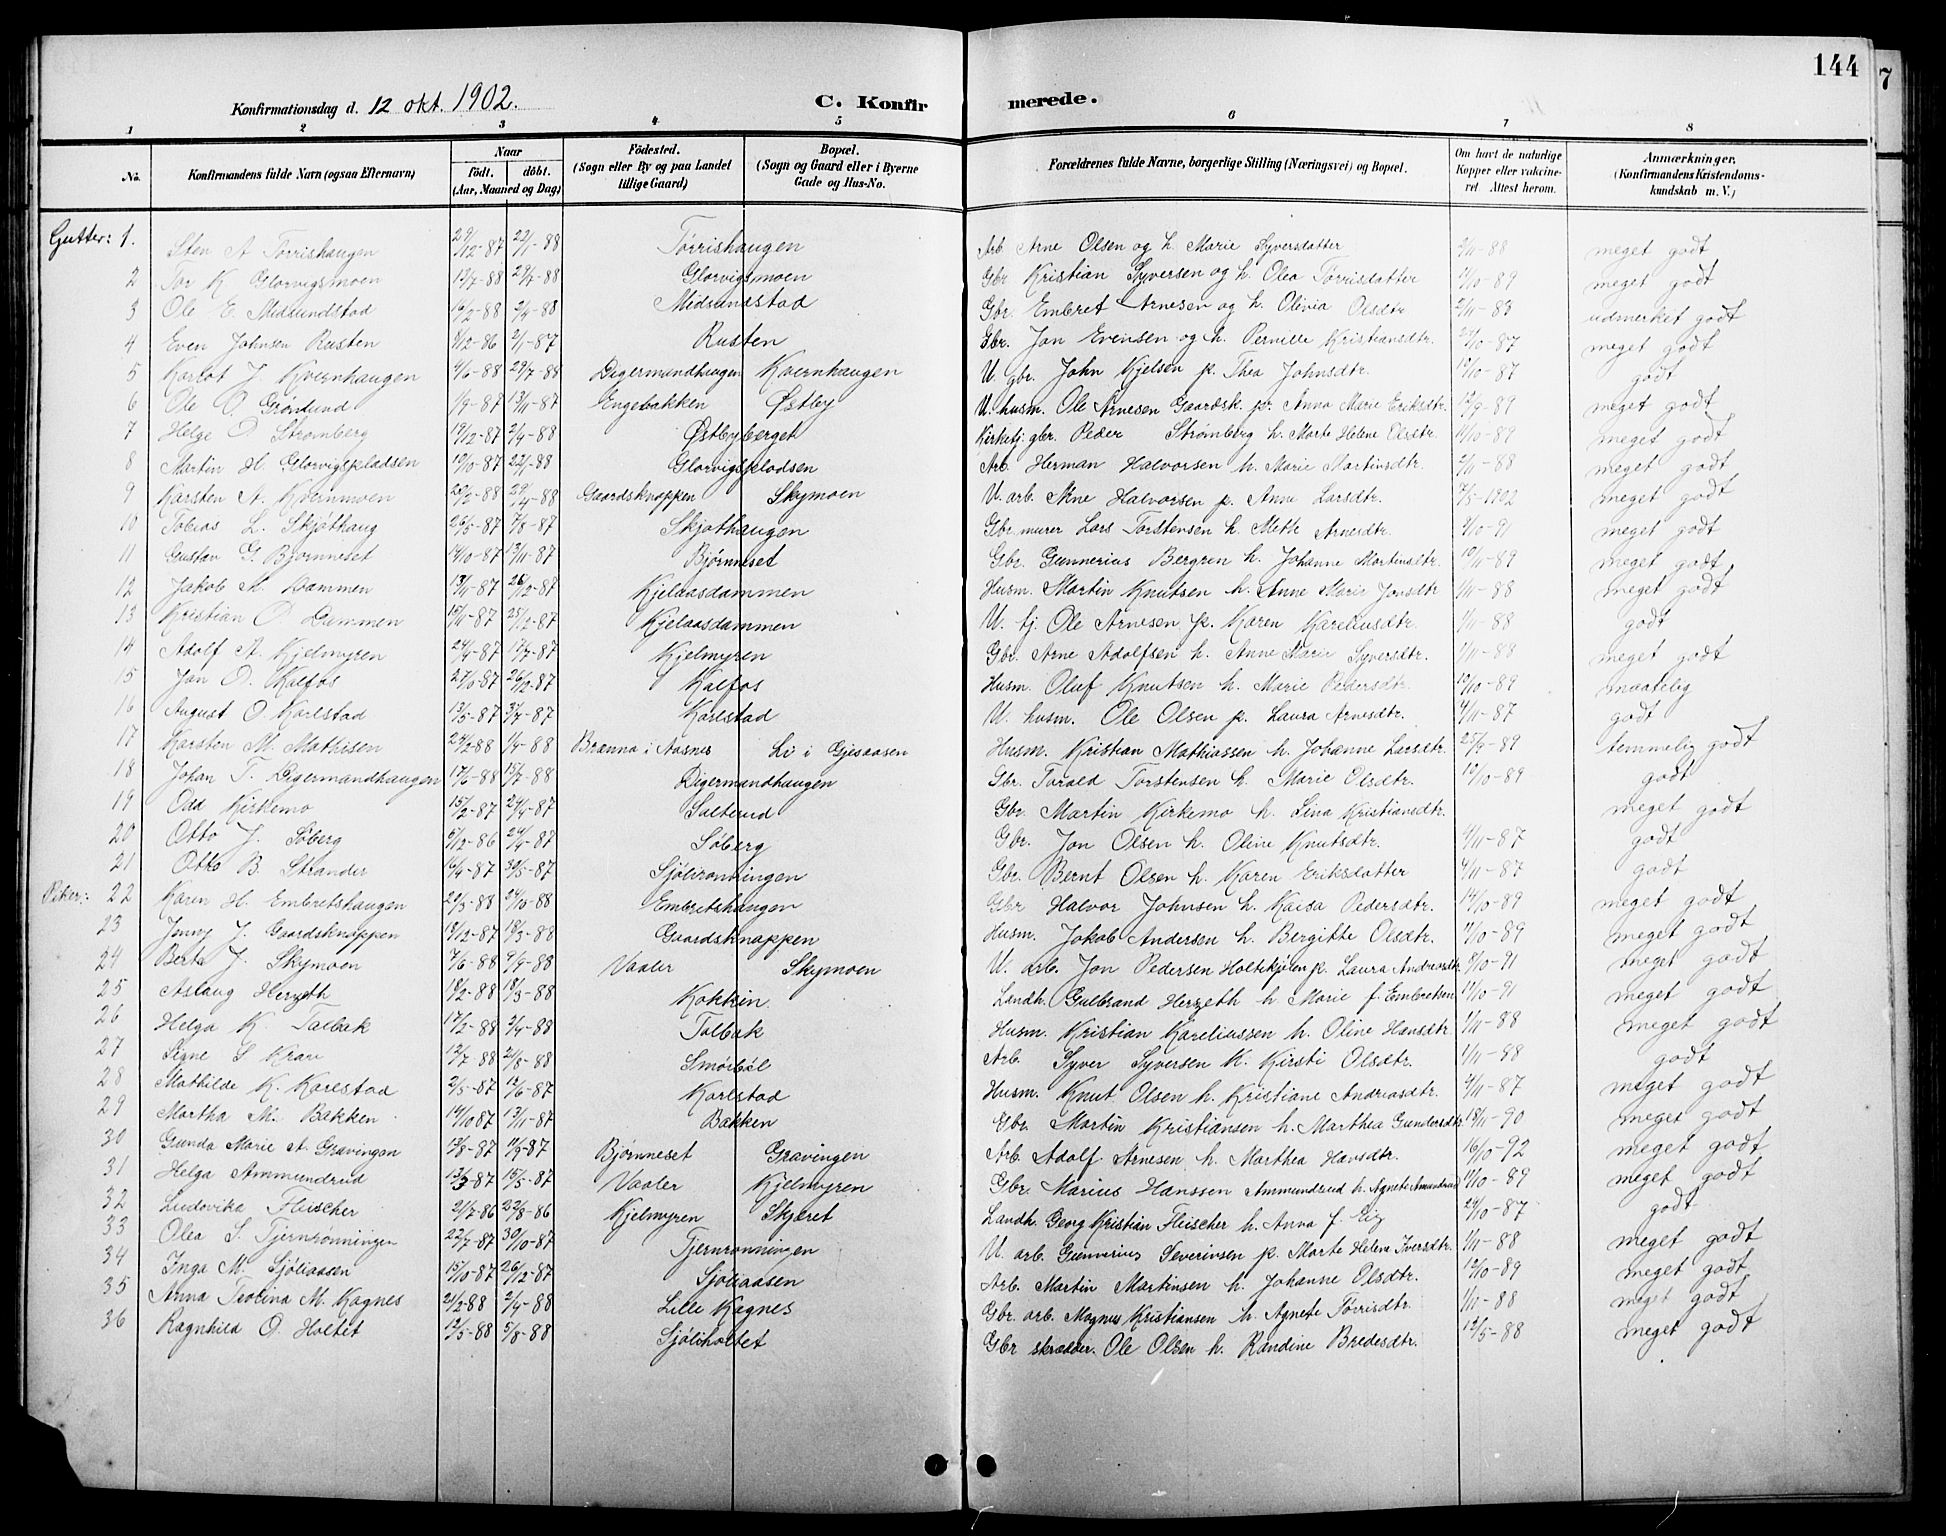 144
7
Konfirmationsdag d. 12 okt. 1902. C. Konfirmerede.
1 2 3 4 5 6 7 8
No. Konfirmandens fulde Navn (ogsaa Efternavn) Naar født. døbt. (Aar, Maaned og Dag) Fødested. (Sogn eller By og paa Landet tillige Gaard) Bopæl. (Sogn og Gaard eller i Byerne Gade og Hus-No. Forældrenes fulde Navne, borgerlige Stilling (Næringsvei) og Bopæl. Om havt de naturlige Kopper eller vakcineret. Attest herom. Anmærkninger. (Konfirmandens Kristendomskundskab m. V.)
Gutter: 1. Sten A Tørrishaugen 29/12-87 22/1-88 Tørrishaugen Arb. Arne Olsen og h. Marie Syversdatter 2/11-88 meget godt
2 Tor K. Glorvigsmoen 13/7-88 29/7-88 Glorvigsmoen Gbr Kristian Syversen og h. Olea Torrisdatter 14/10-89 meget godt
3 Ole E. Midsundstad 19/2-88 2/4-88 Midsundstad Gbr. Embret Arnesen og h. Olivia Olsdtr 2/11-88 udmerket godt
4 Even Johnsen Rusten 8/12-86 2/1-87 Rusten Gbr. Jon Evensen og h. Pernille Kristiansdtr. 24/10-87 meget godt
5 Karlot J. Kvernhaugen 4/6-88 29/7-88 Digermandhaugen Kvernhaugen U. gbr. John Kjelsen p. Thea Johnsdtr. 19/10-87 godt
6 Ole O. Grønlund 1/9-87 13/11-87 Engebakken Østby U. husm. Ole Arnesen Gaardsk. p. Anna Marie Eriksdtr. 12/9-89 meget godt
7 Helge O. Strømberg 19/12-87 2/4-88 Østbyberget Kirketj. gbr. Peder Strømberg h. Marte Helene Olsdtr. 14/10-89 meget godt
8 Martin H. Glorvigspladsen 19/10-87 22/1-88 Glorvigspladsen Arb. Herman Halvorsen h. Marie Martinsdtr. 2/11-88 meget godt
9 Karsten A. Kvernmoen 20/2-88 29/4-88 Gaardsknappen Skymoen U. arb. Arne Halvorsen p. Anne Larsdtr. 7/5-1902 meget godt
10 Tobias L. Skjøthaug 26/5-87 7/8-87 Skjøthaugen Gbr. murer Lars Torstensen h. Mette Arnesdtr. 9/10-91 meget godt
11 Gustav G. Bjørnneset 14/10-87 13/11-87 Bjørnneset Gbr. Gunnerius Bergren h. Johanne Martinsdtr. 10/11-89 meget godt
12 Jakob M. Dammen 13/11-87 26/12-87 Kjelaasdammen Husm. Martin Knutsen h. Anne Marie Jonsdtr 1/11-88 meget godt
13 Kristian O. Dammen 15/11-87 25/12-87 Kjelaasdammen U. tj. Ole Arnesen p. Karen Kareliusdtr. 1/11-88 godt
14 Adolf A. Kjelmyren 24/4-87 17/7-87 Kjelmyren Gbr. Arne Adolfsen h. Anne Marie Syversdtr. 1/11-88 meget godt
15 Jon O. Kalfos 27/6-87 26/12-87 Kalfos Husm. Oluf Knutsen h. Marie Pedersdtr. 10/10-89 maatelig
16 August O. Karlstad 13/5-87 3/7-87 Karlstad U. husm. Ole Olsen p. Laura Arnesdtr. 4/11-87 godt
17 Karsten M. Mathisen 24/2-88 1/4-88 Branna i Aasnes Li i Gjesaasen Husm. Kristian Mathiassen h. Johanne Larsdtr. 25/9-89 temmelig godt
18 Johan T. Digermandhaugen 17/6-88 15/7-88 Digermandhaugen Gbr. Torald Torstensen h. Marie Olsdtr. 12/10-89 godt
19 Odd Kirkemo 15/2-87 24/4-87 Salterud Gbr. Martin Kirkemo h. Lina Kristiansdtr. meget godt
20 Otto J. Søberg 5/12-86 24/4-87 Søberg Gbr. Jon Olsen h. Oline Knutsdtr. 4/11-87 godt
21 Otto B. Strander 16/4-87 30/5-87 Sjølirønningen Gbr. Bernt Olsen h. Karen Eriksdatter 4/11-87 godt
Piker: 22 Karen H. Embretshaugen 20/3-88 24/10-88 Embretshaugen Gbr Halvor Johnsen h. Kaisa Pedersdtr. 14/10-89 meget godt
23 Jenny J. Gaardsknappen 19/12-87 18/3-88 Gaardsknappen Husm. Jakob Andersen h. Bergitte Olsdtr. 11/10-89 meget godt
24 Berte J. Skymoen 7/6-88 9/9-88 Vaaler Skymoen U. arb. Jon Pedersen Holtekjølen p. Laura Andreasdtr. 8/10-91 meget godt
25 Aslaug Herzeth 18/2-88 18/3-88 Kokkin Landh. Gulbrand Herzeth h. Marie f. Embretsen 17/10-91 meget godt
26 Helga K. Talbak 17/2-88 2/4-88 Talbak Husm. Kristian Kareliussen h. Oline Hansdtr. 1/11-88 meget godt
27 Signe S. Krav 12/7-88 21/8-88 Smørbøl Arb. Syver Syversen h. Kirsti Olsdtr. 1/11-88 godt
28 Mathilde K. Karlstad 2/5-87 12/6-87 Karlstad Husm. Knut Olsen h. Kristiane Andreasdtr. 4/11-87 meget godt
29 Martha M. Bakken 14/10 87 13/11-87 Bakken Gbr. Martin Kristiansen h. Marthea Gundersdtr. 18/11-90 meget godt
30 Gunda Marie A. Gravingen 13/8-87 11/9-87 Bjørnneset Gravingen Arb. Adolf Arnesen h. Marthea Hansdtr. 16/10-92 meget godt
31 Helga Ammundrud 13/3-87 15/5-87 Vaaler Kjelmyren Gbr. Marius Hanssen Ammundrud h. Agnete Amundrud 11/10-89 meget godt
32 Ludovika Fleischer 21/7-86 22/8-86 Kjelmyren Skjæret Landh. Georg Kristian Fleischer h. Anna f. Eig 24/10-87 godt
33 Olea S. Tjernrønningen 22/7-87 30/10-87 Tjernrønningen U. arb. Gunnerius Severinsen p. Marte Helene Iversdtr. 1/11-88 meget godt
34 Inga M. Sjøliaasen 15/10-87 26/12-87 Sjøliaasen Arb. Martin Martinsen h. Johanne Olsdtr. 10/10-89 meget godt
35 Anna Teolina M. Kagnes 21/2-88 2/4-88 Lille Kagnes Gbr. arb. Magnus Kristiansen h. Agnete Tørrisdtr. 1/11-88 meget godt
36 Ragnhild O. Holtet 12/5-88 5/8-88 Sjøliholtet Gbr skrædder. Ole Olsen h. Randine Bredesdtr. 13/5-88 meget godt